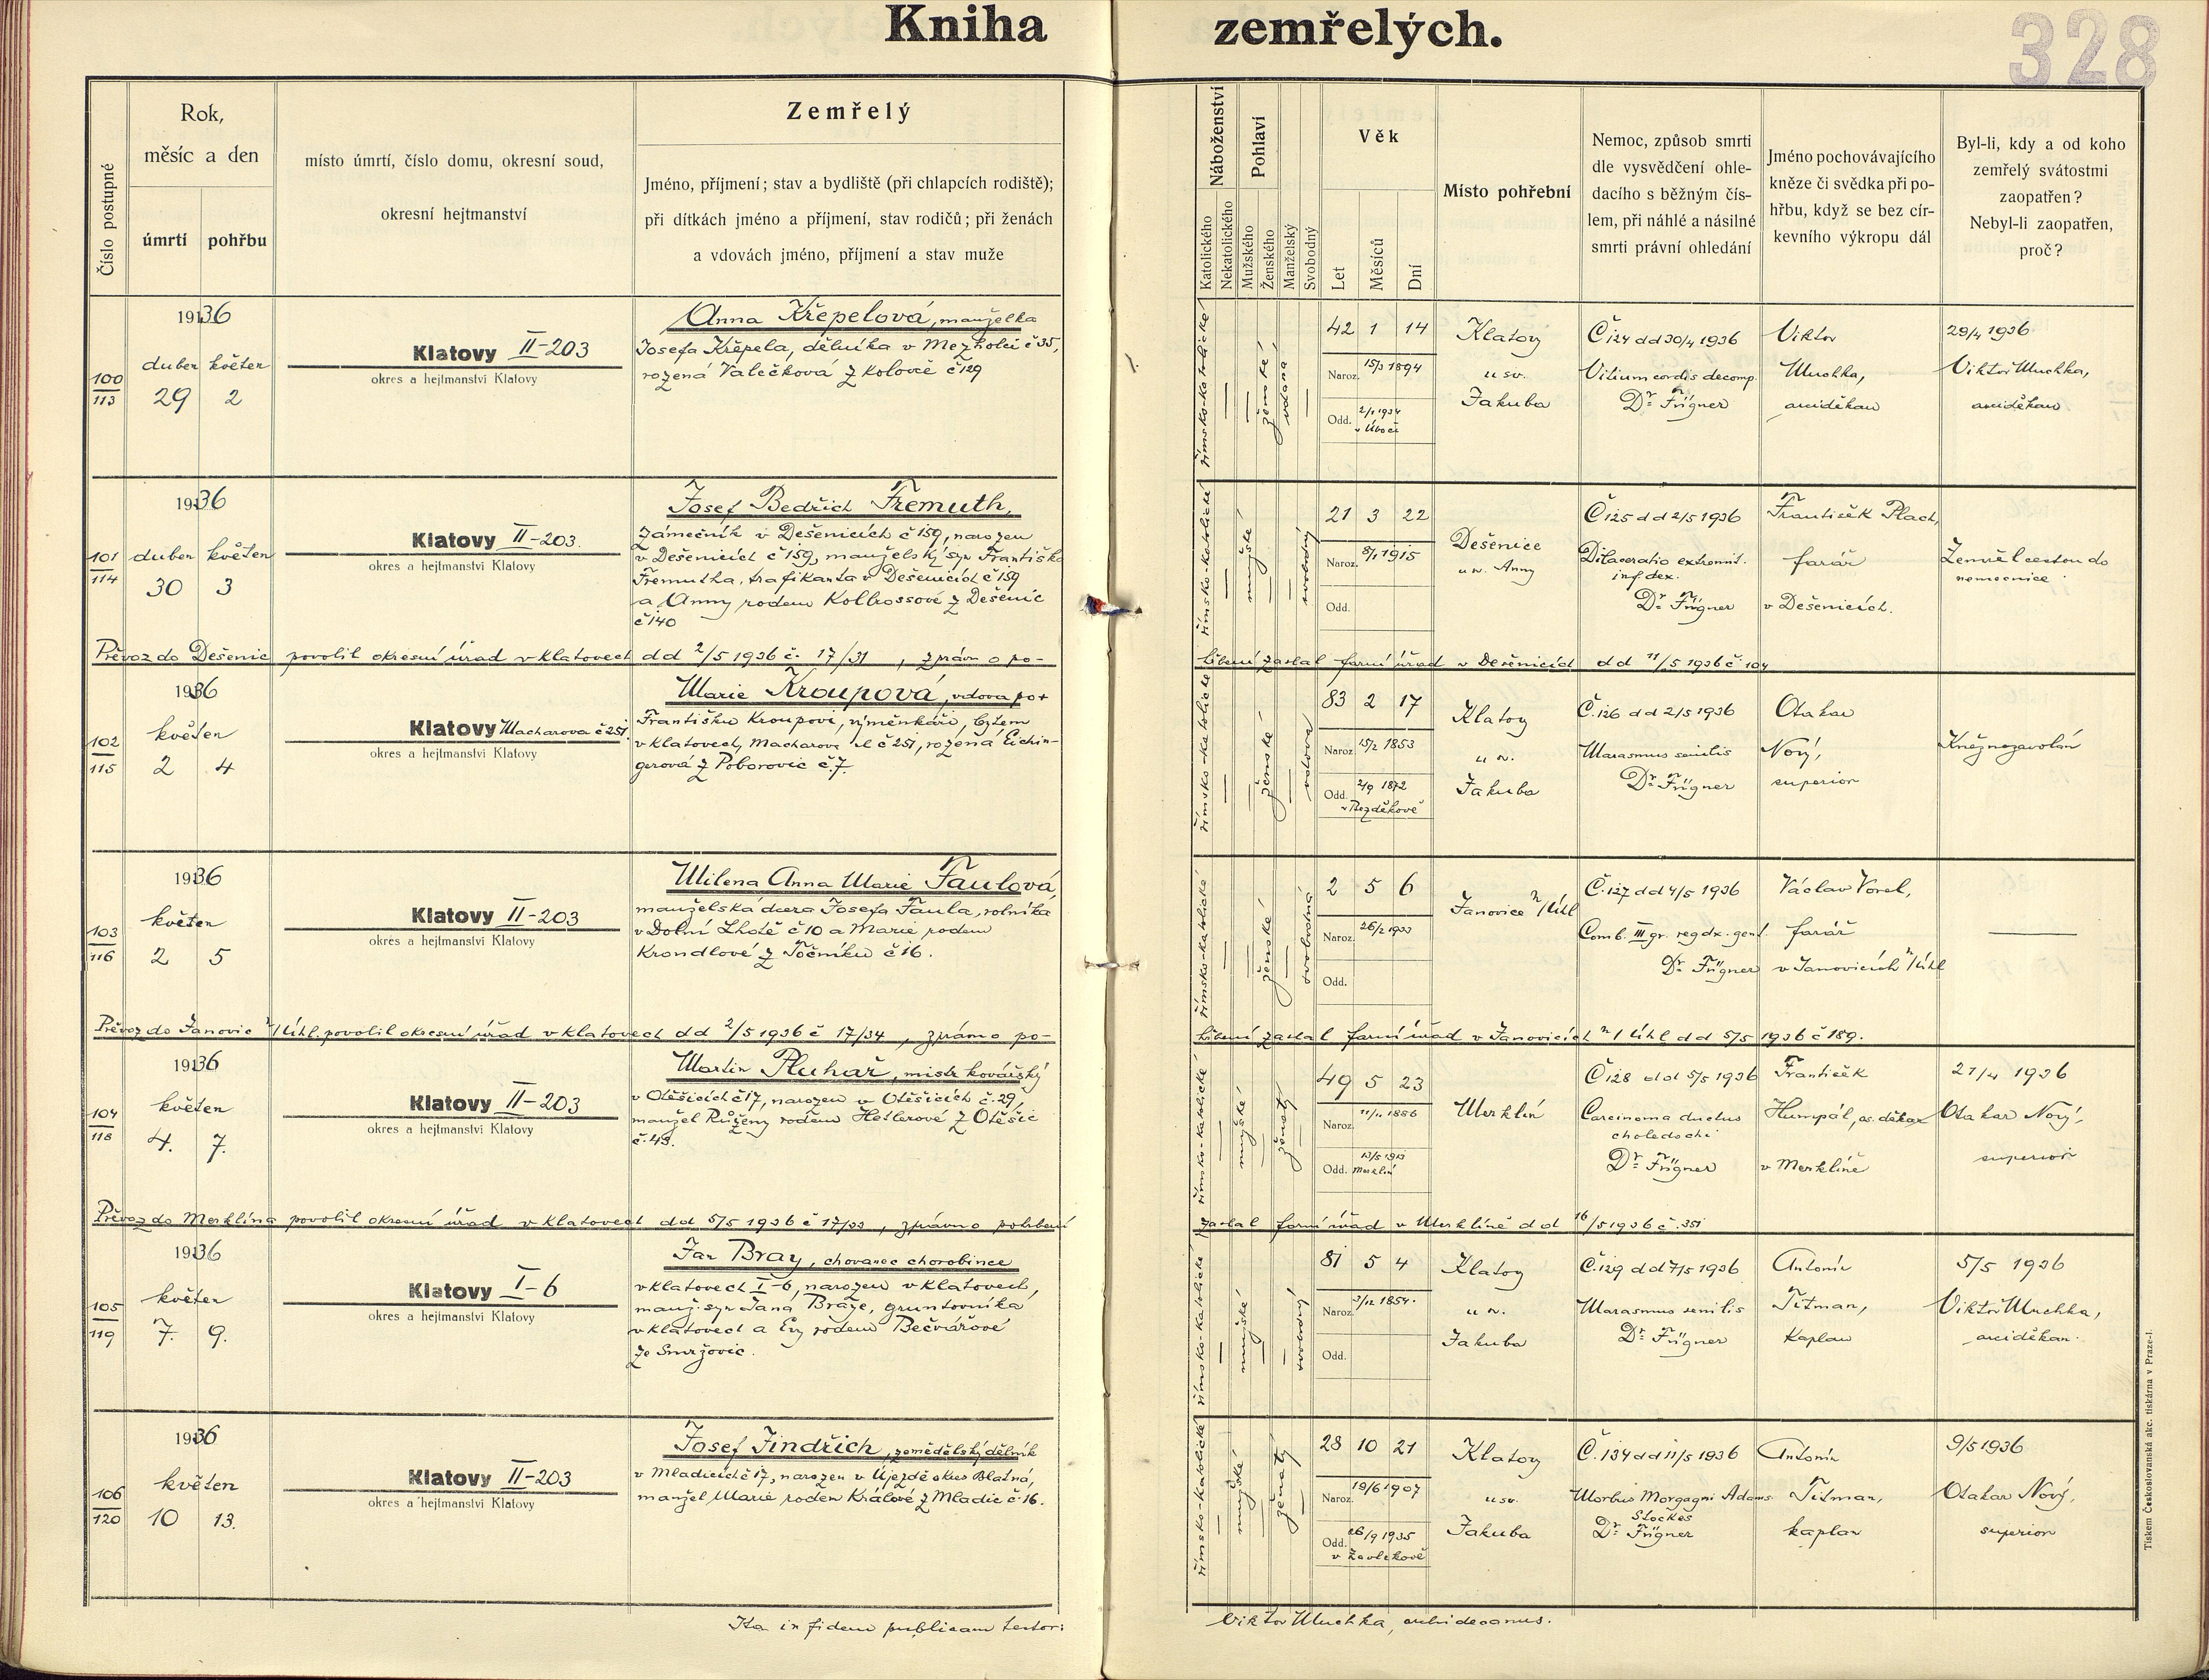 Kniha zemřelých.
328
Číslo postupné
Rok,
měsíc a den
úmrtí
pohřbu
místo úmrtí, číslo domu, okresní soud,
okresní hejtmanství
Zemřelý
Jméno, příjmení; stav a bydliště (při chlapcích rodiště);
při dítkách jméno a příjmení, stav rodičů; při ženách
a vdovách jméno, příjmení a stav muže
Náboženství
Katolického
Nekatolického
Pohlaví
Mužského
Ženského
Manželský
Svobodný
Věk
Let
Měsíců
Dní
Místo pohřební
Nemoc, způsob smrti
dle vysvědčení ohle-
dacího s běžným čís-
lem, při náhlé a násilné
smrti právní ohledání
Jméno pochovávajícího
kněze či svědka při po-
hřbu, když se bez cír-
kevního výkropu dál
Byl-li, kdy a od koho
zemřelý svátostmi
zaopatřen?
Nebyl-li zaopatřen,
proč?
100
113
1936
duben květen
29 2
Klatovy II-203
okres a hejtmanství Klatovy
Anna Křepelová, manželka
Josefa Křepela, dělníka v Mezholci č 35,
rozená Valečková z Kolovče č 129
římsko-katolické
ženské
vdaná
42 1 14
Naroz. 15/3 1894
Odd.
Klatovy
u sv.
Jakuba
Č 124 dd 30/4 1936
Vitium cordis decomp.
Dr. Fügner
Viktor
Muchka,
arciděkan
29/4 1936
Viktor Muchka,
arciděkan
101
114
1936
duben květen
30 3
Klatovy II-203.
okres a hejtmanství Klatovy
Josef Bedřich Fremuth,
zámečník v Dešenicích č 159, narozen
v Dešenicích č 159, manželský syn Františka
Fremutha, trafikanta v Dešenicích č 159
a Anny rodem Kolbrossové z Dešenic
č 140
římsko-katolické
mužské
svobodný
21 3 22
Naroz. 8/1 1915
Odd.
Dešenice
u sv. Anny
Č 125 dd 2/5 1936
Dilaceratio extremit.
inf dex.
Dr. Fügner
František Plach,
farář
v Dešenicích.
Zemřel cestou do
nemocnice
Převoz do Dešenic povolil okresní úřad v Klatovech dd 2/5 1936 č. 17/31, zprávu o po-
hřbení zaslal farní úřad v Dešenicích dd 11/5 1936 č 104
102
115
1936
květen
2 4
Klatovy Macharova č 251.
okres a hejtmanství Klatovy
Marie Kroupová, vdova po +
Františku Kroupovi, výměnkáři, bytem
v Klatovech, Macharova ul č 251, rozená Eichin-
gerová z Poborovic č 7.
římsko-katolické
ženské
vdova
83 2 17
Naroz. 15/2 1853
Odd. 2/9 1872
v Bezděkově
Klatovy
u sv.
Jakuba
Č. 126 dd 2/5 1936
Marasmus senilis
Dr. Fügner
Otakar
Nový,
superior
Kněz nezavolán
103
116
1936
květen
2 5
Klatovy II-203
okres a hejtmanství Klatovy
Milena Anna Marie Faulová,
manželská dcera Josefa Faula, rolníka
v Dolní Lhotě č 10 a Marie rodem
Krondlové z Točníku č 16.
římsko-katolické
ženské
svobodná
2 5 6
Naroz. 26/2 1933
Odd.
Janovice n/Úhl
Č. 127 dd 4/5 1936
Comb. III gr. reg dx. gen
Dr. Fügner
Václav Vorel,
farář
v Janovicích n/Úhl
Převoz do Janovic n/Úhl. povolil okresní úřad v Klatovech dd 2/5 1936 č 17/34, zprávu o po-
hřbení zaslal farní úřad v Janovicích n/Úhl dd 5/5 1936 č 189.
104
118
1936
květen
4. 7.
Klatovy II-203
okres a hejtmanství Klatovy
Martin Pluhař, mistr kovářský
v Otěšicích č 17, narozen v Otěšicích č. 29,
manžel Růženy rodem Heslerové z Otěšic
č. 43.
římsko-katolické
mužské
ženatý
49 5 23
Naroz. 11/11 1886
Odd. 13/5 1913
Merklín
Merklín
Č 128 dd 5/5 1936
Carcinoma ductus
choledochi
Dr. Fügner
František
Humpál, os. děkan
v Merklíně
21/4 1936
Otakar Nový,
superior
Převoz do Merklína povolil okresní úřad v Klatovech dd 5/5 1936 č 17/33, zprávu o pohřbení
zaslal farní úřad v Merklíně dd 16/5 1936 č. 351
105
119
1936
květen
7. 9.
Klatovy I-6
okres a hejtmanství Klatovy
Jan Bray, chovanec chorobince
v Klatovech I-6, narozen v Klatovech,
manž. syn Jana Braye, gruntovníka
v Klatovech a Evy rodem Bečvářové
ze Smržovic.
římsko-katolické
mužské
svobodný
81 5 4
Naroz. 3/12 1854.
Odd.
Klatovy
u sv.
Jakuba
Č. 129 dd 7/5 1936
Marasmus senilis
Dr. Fügner
Antonín
Titman,
Kaplan
5/5 1936
Viktor Muchka,
arciděkan.
106
120
1936
květen
10 13.
Klatovy II-203
okres a hejtmanství Klatovy
Josef Jindřich, zemědělský dělník
v Mladicích č 17, narozen v Újezdě okres Blatná,
manžel Marie rodem Králové z Mladic č. 16.
římsko-katolické
mužské
ženatý
28 10 21
Naroz. 19/6 1907
Odd. 26/9 1935
v Zavlekově
Klatovy
u sv.
Jakuba
Č. 134 dd 11/5 1936
Morbus Morgagni Adams
Stockes
Dr. Fügner
Antonín
Titman,
kaplan
9/5 1936
Otakar Nový,
superior
Ita in fidem publicam testor:
Viktor Muchka, archidecanus.
Tiskem Československá akc. tiskárna v Praze-I.